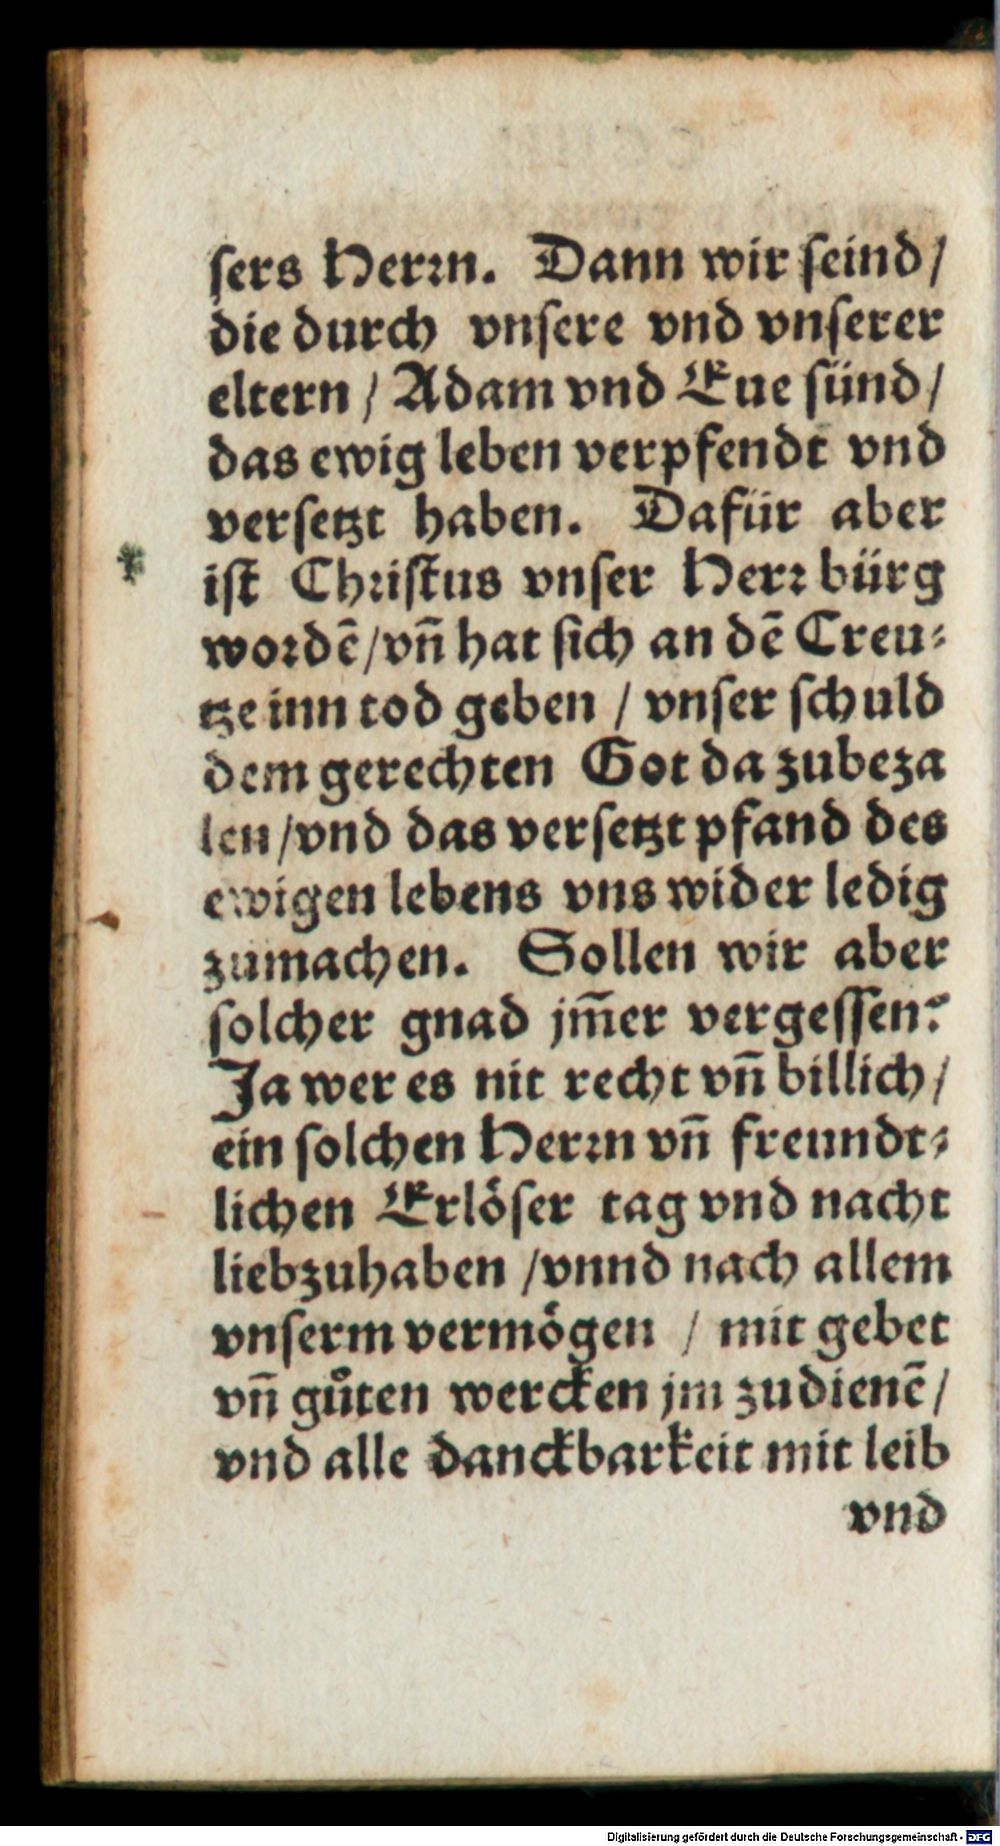 ſers Herꝛn. Dann wir ſeind /
die durch vnſere vnd vnſerer
eltern / Adam vnd Eue ſünd /
das ewig leben verpfendt vnd
verſetzt haben. Dafür aber
iſt Chꝛiſtus vnſer Herꝛ bürg
woꝛdē / vn̄ hat ſich an dē Creu⸗
tze inn tod geben / vnſer ſchuld
dem gerechten Got da zubeza
len / vnd das verſetzt pfand des
ewigen lebens vns wider ledig
zumachen. Sollen wir aber
ſolcher gnad jm̄er vergeſſen?
Ja wer es nit recht vn̄ billich /
ein ſolchen Herꝛn vn̄ freundt⸗
lichen Erlöſer tag vnd nacht
liebzuhaben / vnnd nach allem
vnſerm vermögen / mit gebet
vn̄ gůten wercken jm zudienē /
vnd alle danckbarkeit mit leib
vnd
Digitalisierung gefördert durch die Deutsche Forschungsgemeinschaft - DFG